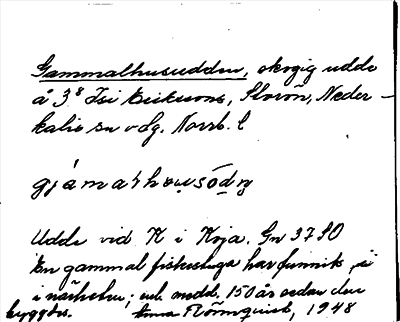 Gammalhusudden, skogig udde
å 3⁸ Isi Erikssons, Storön, Neder-
kalix sn o dg. Norrb. l
gjámalhusödṇ
Udde vid K i Koja. Gn 3780
En gammal fiskestuga har funnits i
i närheten; enl. medd. 150 år sedan den
byggdes. Anna Rönnquist, 1948